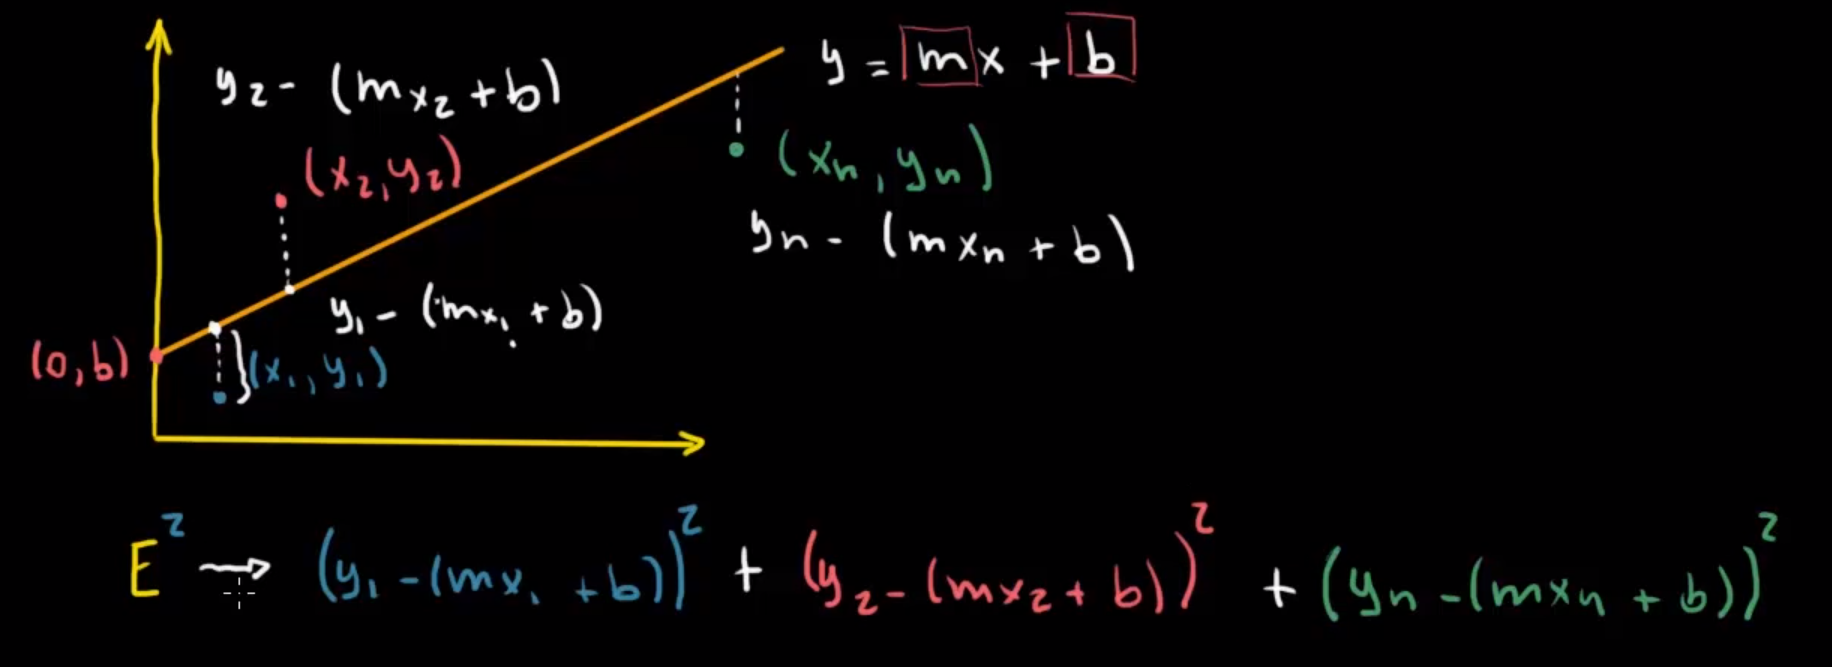 y = mx + b
y₂ - (mx₂ + b)
(x₂, y₂)
(xₙ, yₙ)
yₙ - (mxₙ + b)
y₁ - (mx₁ + b)
(0, b)
(x₁, y₁)
E² → (y₁ - (mx₁ + b))² + (y₂ - (mx₂ + b))² + (yₙ - (mxₙ + b))²